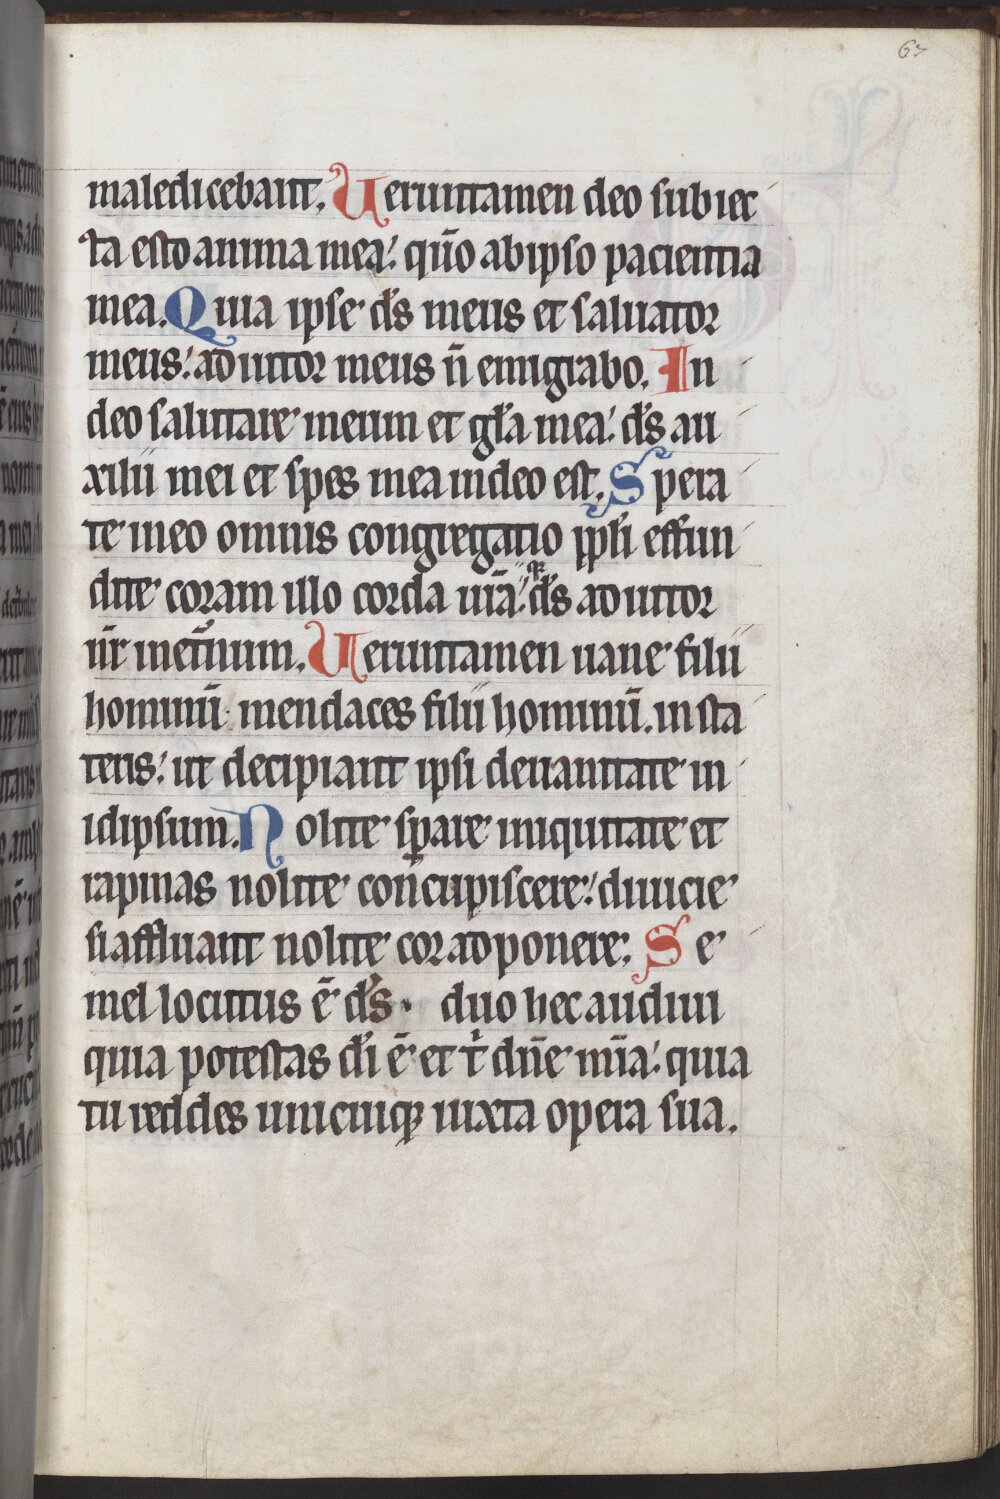 67
maledicebant. Ueruntamen deo subiec
ta esto anima mea: qūo ab ipso paciencia
mea. Quia ipse d̄s meus et saluator
meus: adiutor meus n̄ emigrabo. In
deo salutare meum et gl̄a mea: d̄s au
xilii mei et spes mea in deo est. Spera
te in eo omnis congregatio ppl̄i effun
dite coram illo corda urā: qr d̄s adiutor
nr̄ inet̄num. Ueruntamen uane filii
hominū mendaces filii hominū. in sta
teris: ut decipiant ipsi de uanitate in
idipsum. Nolite sꝑare iniquitate et
rapinas nolite concupiscere: diuicie
si affluant nolite cor adponere. Se
mel locutus ē d̄s. duo hec audiui
quia potestas dī ē et t̄ dn̄e mīa: quia
tu reddes unicuiqꝫ iuxta opera sua.